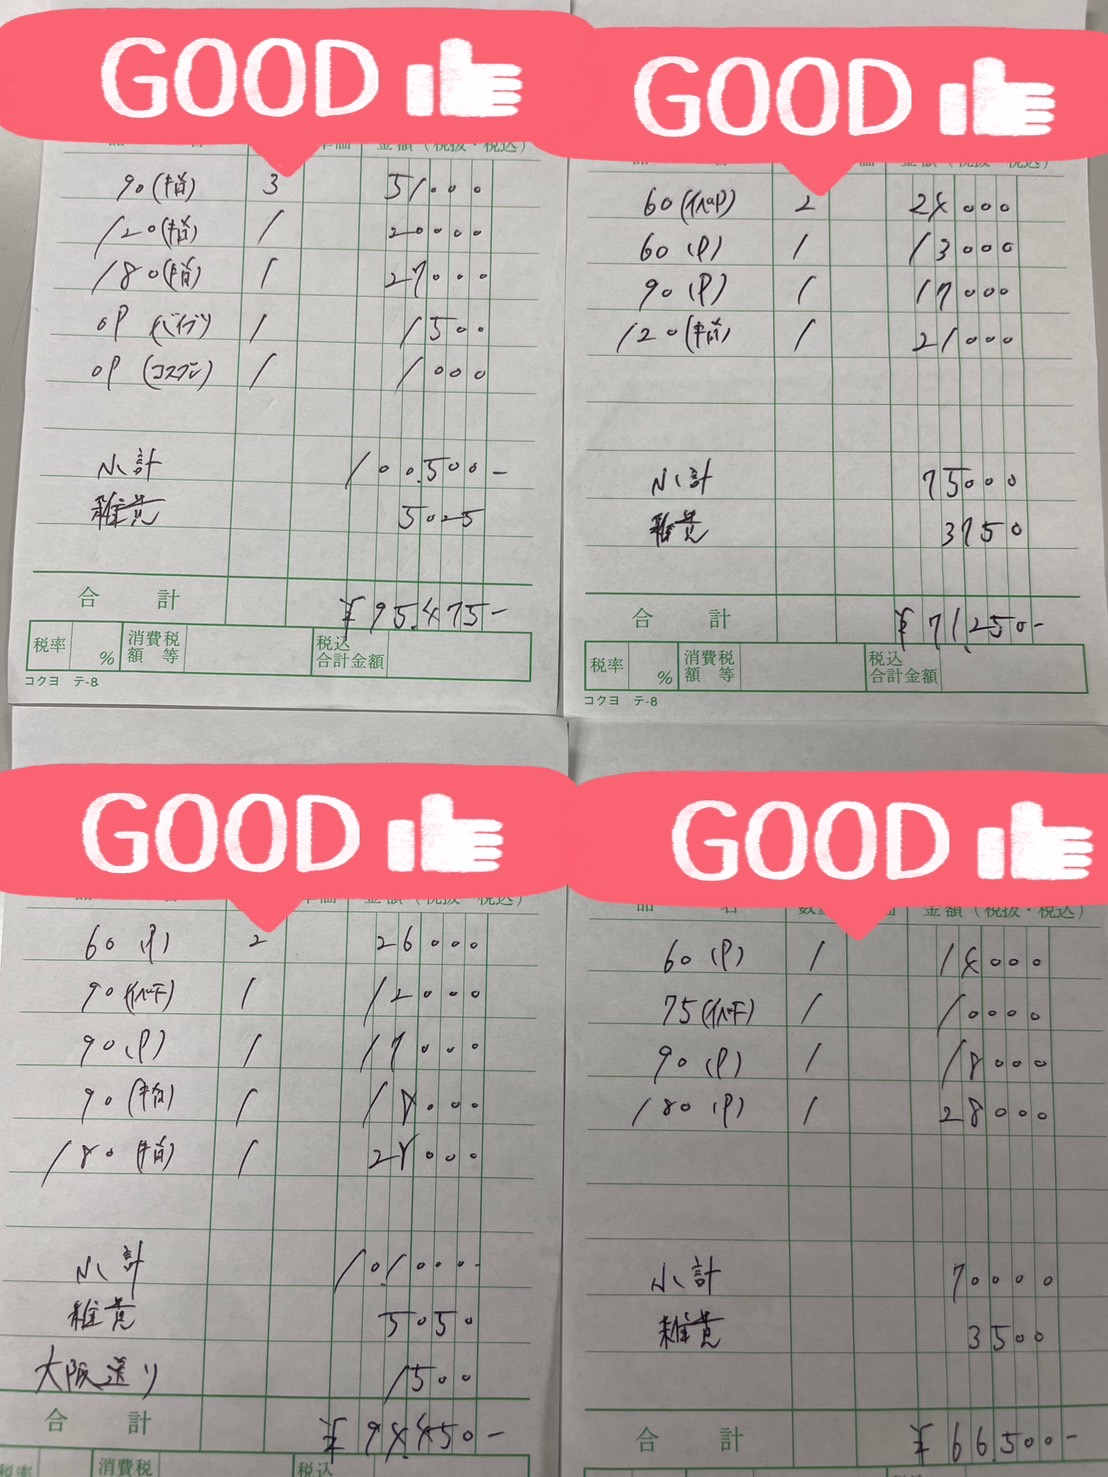 GOOD
90(本指) 3 51000
120(本指) 1 20000
180(本指) 1 27000
OP (バイブ) 1 1500
OP (コスプレ) 1 1000
小計 100.500-
雑費 5025
合計 ¥95.475-
税率 % 消費税額等 税込合計金額
コクヨ テ-8
GOOD
60(イベP) 2 24000
60(P) 1 13000
90(P) 1 17000
120(本指) 1 21000
小計 75000
雑費 3750
合計 ¥71.250-
税率 % 消費税額等 税込合計金額
コクヨ テ-8
GOOD
金額(税抜・税込)
60(P) 2 26000
90(イベF) 1 12000
90(P) 1 17000
90(本指) 1 18000
180(本指) 1 28000
小計 101.000-
雑費 5050
大阪送り 1500
合計 ¥94.450-
消費税 税込
GOOD
品名 金額(税抜・税込)
60(P) 1 14000
75(イベF) 1 10000
90(P) 1 18000
180(P) 1 28000
小計 70000
雑費 3500
合計 ¥66.500-